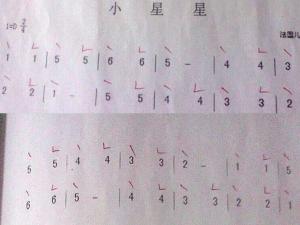 小 星 星
1=D 2/4
法国儿
1 1 | 5 5 | 6 6 | 5 - | 4 4 | 3
2 2 | 1 - | 5 5 | 4 4 | 3 3 | 2
5 5 | 4 4 | 3 3 | 2 - | 1 1 | 5
6 6 | 5 - | 4 4 | 3 3 | 2 2 | 1